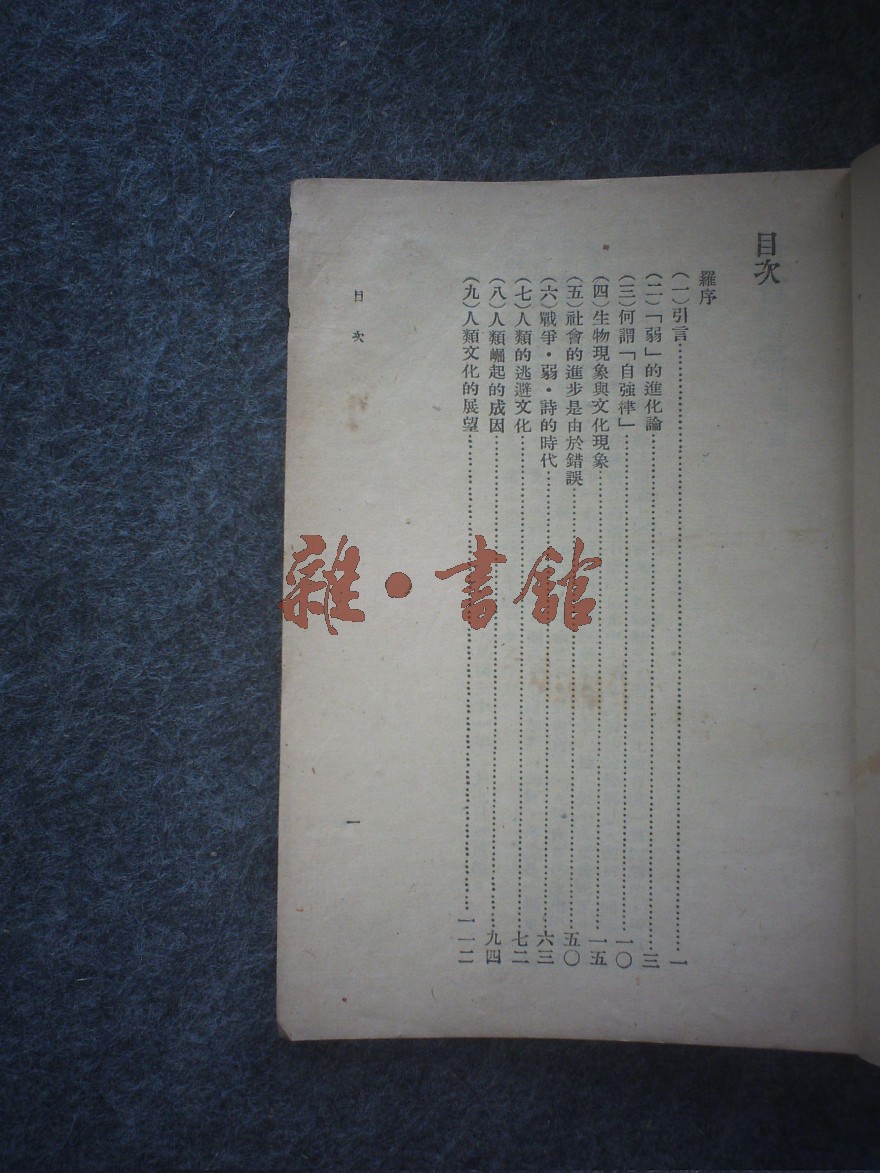 目次
羅序
（一）引言……一
（二）「弱」的進化論……三
（三）何謂「自強律」……一〇
（四）生物現象與文化現象……一五
（五）社會的進步是由於錯誤……五〇
（六）戰爭・弱・詩的時代……六三
（七）人類的逃避文化……七二
（八）人類崛起的成因……九四
（九）人類文化的展望……一一二
目次
一
雜・書館